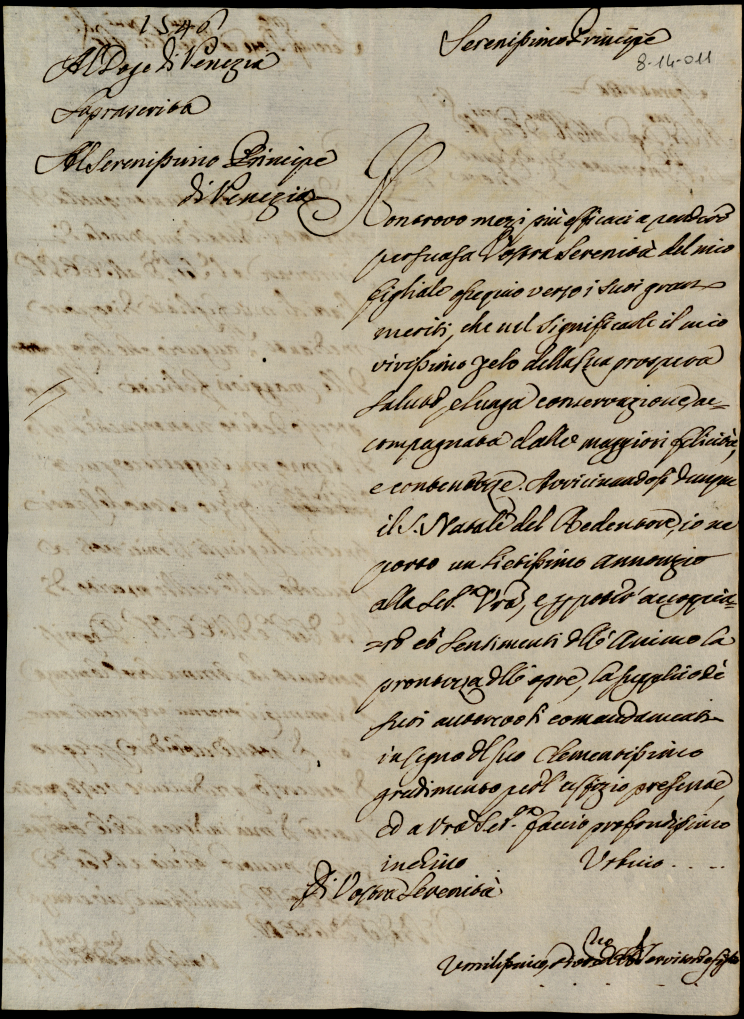 1546
Al Doge di Venezia
Soprascritta
Al Serenissimo Principe
di Venezia
Serenissimo Principe
8-14-011
Non trovo mezi più efficaci a render
persuasa Vostra Serenità del mio
figliale ossequio verso i suoi gran
meriti, che nel significarle il mio
vivissimo zelo della sua prospera
salute, e lunga conservazione, ac=
compagnata dalle maggiori felicità,
e contentezze. Avvicinandosi dunque
il S. Natale del Redentore, io ne
porto un lietissimo annonzio
alla Ser.tà Vrã, e per poter accoppia=
=re co' sentimenti dell'Animo la
prontezza dell'opre, la supplico de'
suoi autorevoli comandamenti
in segno del suo clementissimo
gradimento per l'uffizio presente,
ed a Vrã Ser.tà faccio profondissimo
inchino. Urbino. . . .
Di Vostra Serenità
Umilissimo, Servitore